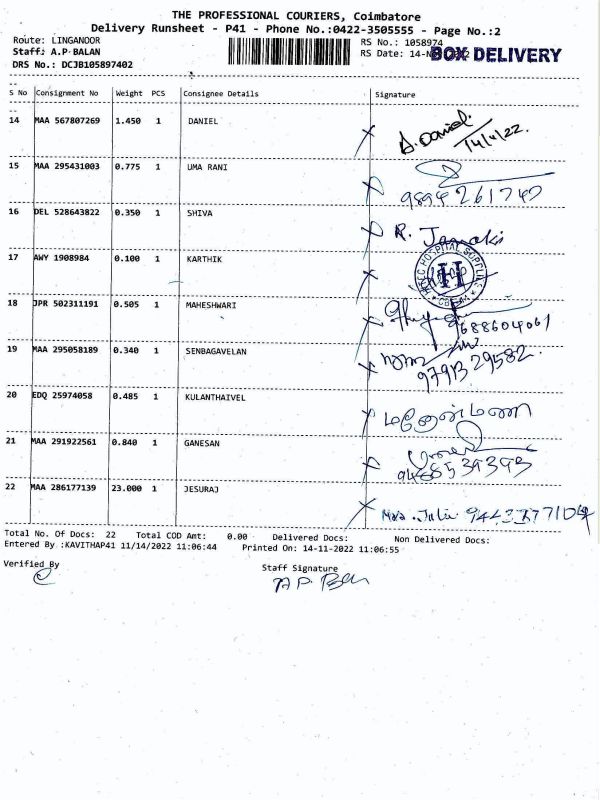 THE PROFESSIONAL COURIERS, Coimbatore
Delivery Runsheet - P41 - Phone No.:0422-3505555 - Page No.:2
Route: LINGANOOR RS No.: 1058974
Staff: A.P BALAN RS Date: 14- BOX DELIVERY
DRS No.: DCJB105897402
S No Consignment No Weight PCS Consignee Details Signature
14 MAA 567807269 1.450 1 DANIEL A. Daniel 14/11/22.
15 MAA 295431003 0.775 1 UMA RANI
16 DEL 528643822 0.350 1 SHIVA R. Janaki
17 AWY 1908984 0.100 1 KARTHIK HOSPITAL SUPPLIES H
18 JPR 502311191 0.505 1 MAHESHWARI 9688604061
19 MAA 295058189 0.340 1 SENBAGAVELAN
20 EDQ 25974058 0.485 1 KULANTHAIVEL
21 MAA 291922561 0.840 1 GANESAN
22 MAA 286177139 23.000 1 JESURAJ
Total No. Of Docs: 22 Total COD Amt: 0.00 Delivered Docs: Non Delivered Docs:
Entered By :KAVITHAP41 11/14/2022 11:06:44 Printed On: 14-11-2022 11:06:55
Verified By Staff Signature
A.P. Balan